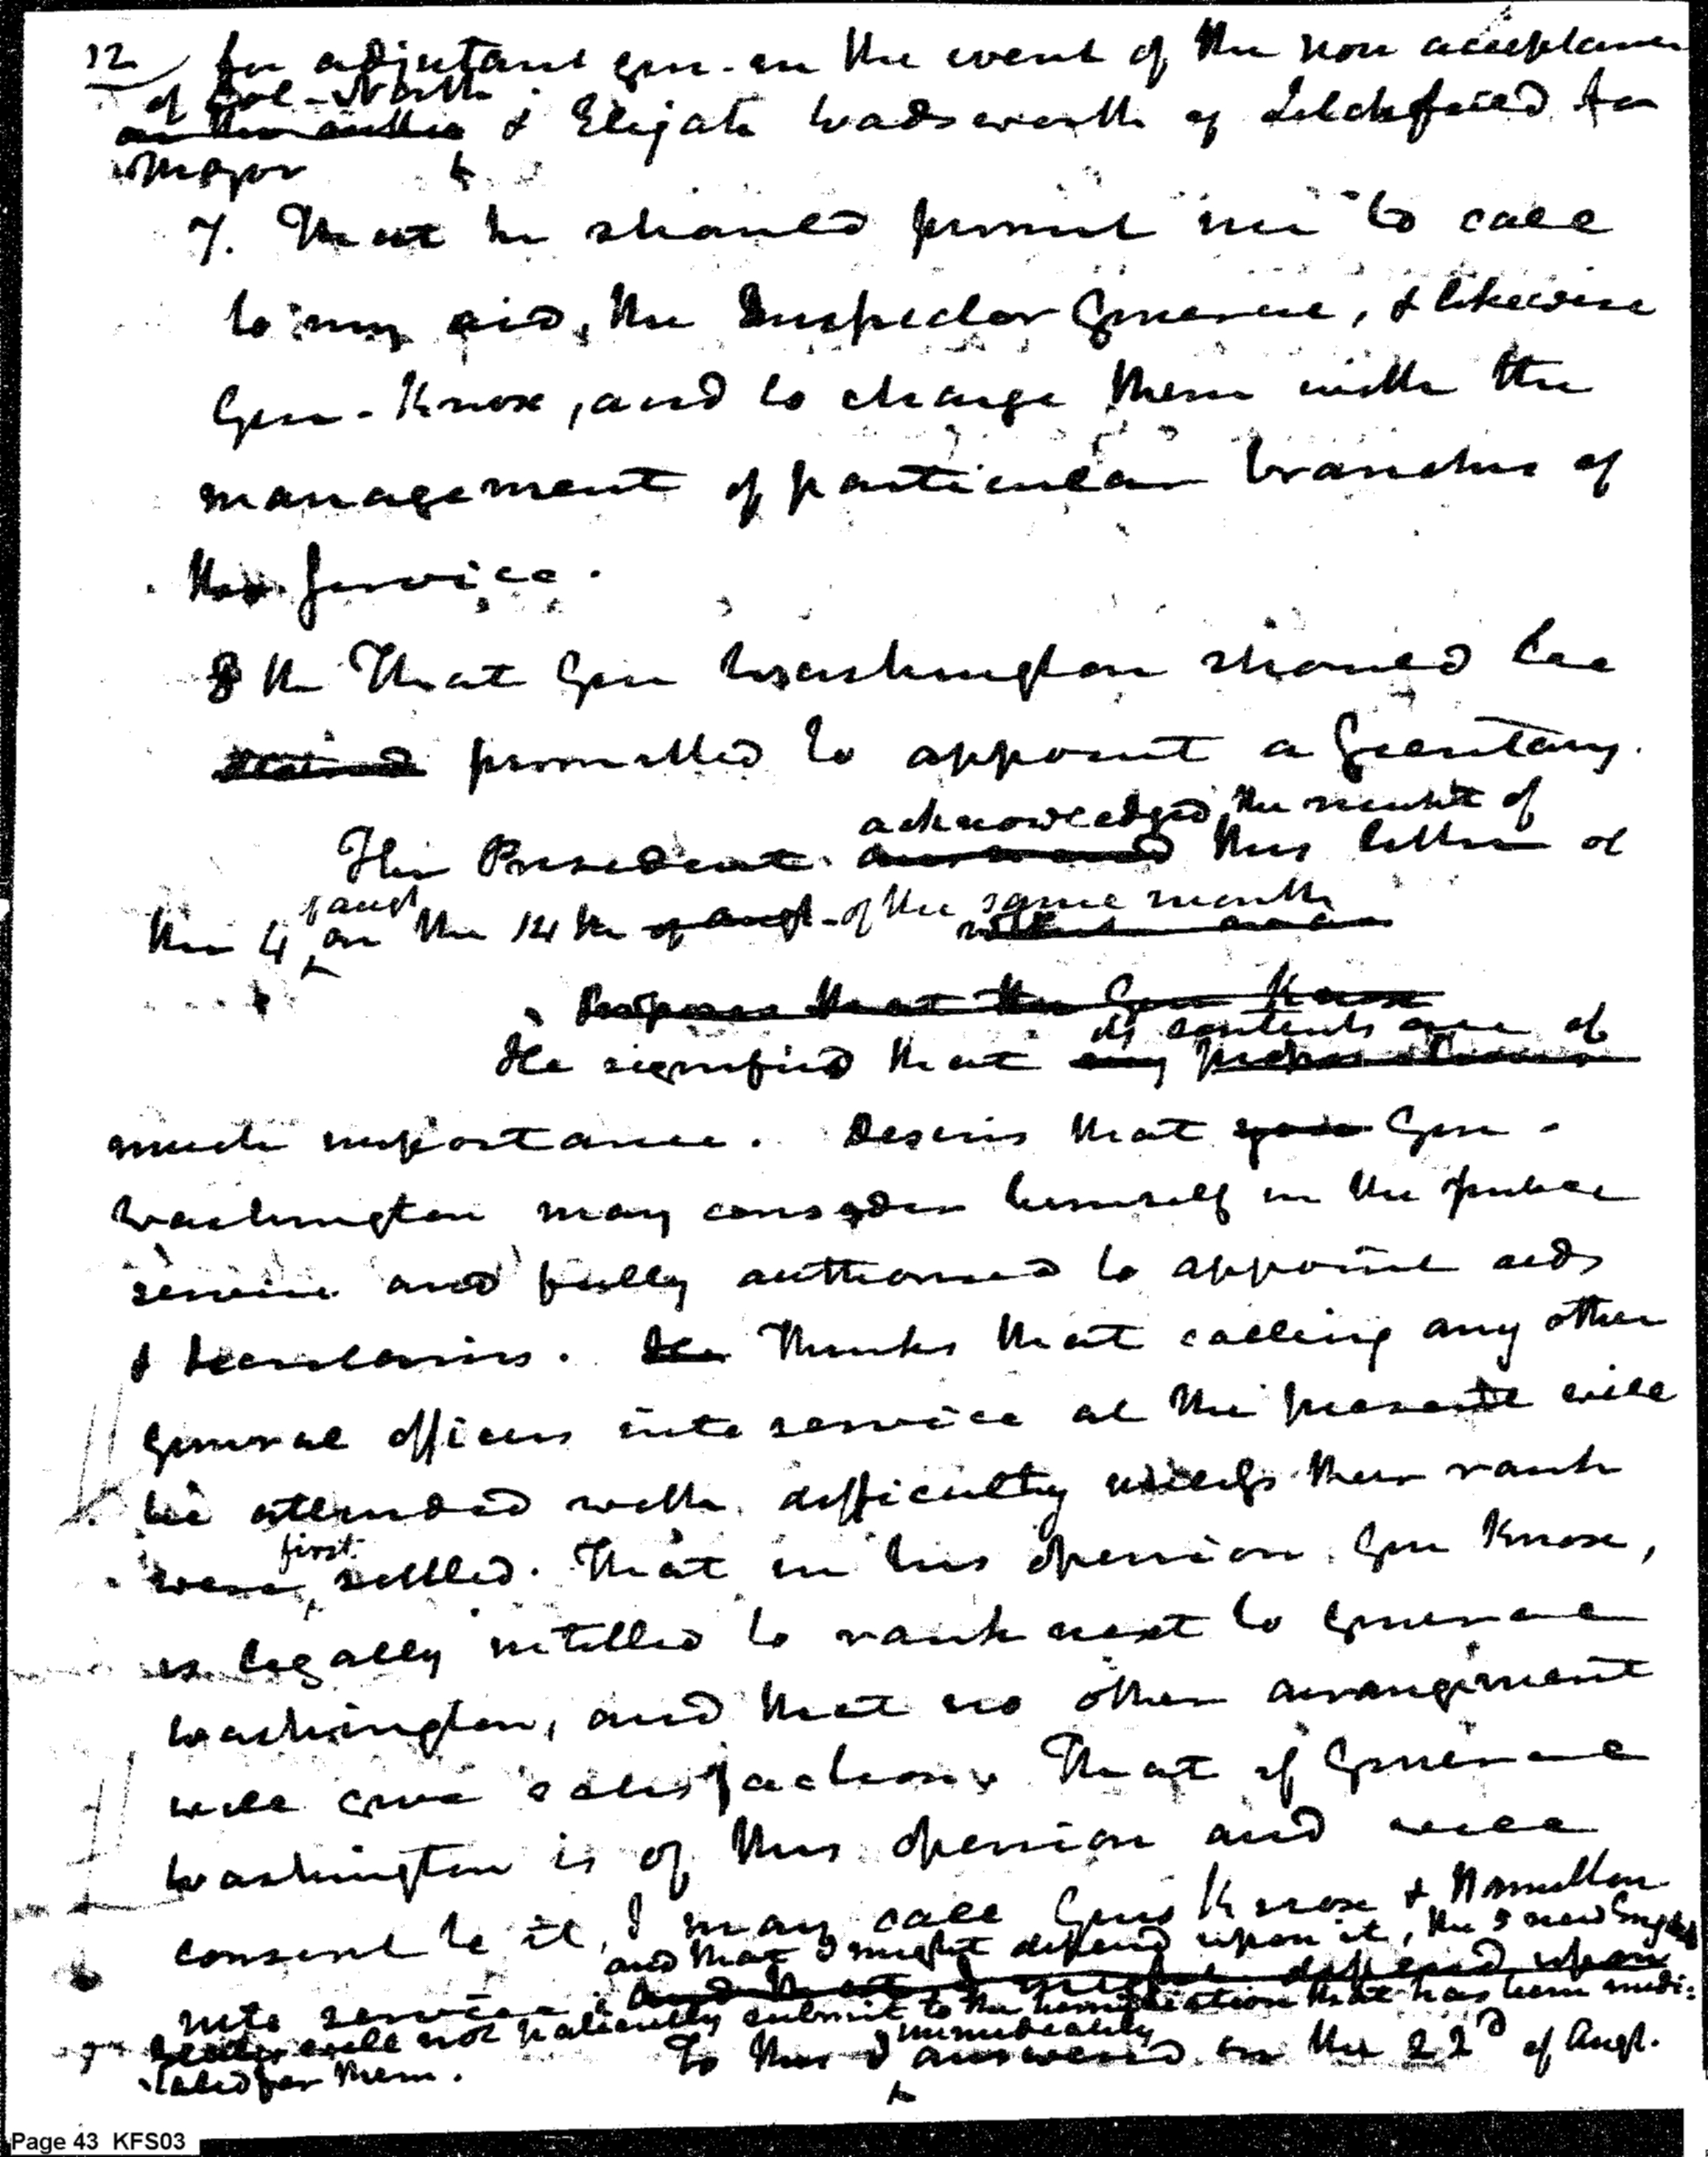 12 for adjutant gen. in the event of the non acceptance
of Col. North
or ther author & Elijah Wadsworth of Litchfield for
Major
7. That he should permit me to call
to my aid, the Inspector General, & likewise
Gen. Knox, and to charge them with the
management of particular branches of
the Service.
8th That Gen Washington should be
permitted to appoint a Secretary.
acknowledged the receipt of
The President answered this letter of
of augt of the same month
the 4 on the 14th of augt.
Proposes that the Gen Knox
its contents are of
He signified that any propositions
much importance. Desires that your Gen.
Washington may consider himself in the public
service and fully authorised to appoint aids
& secretaries. He Thinks that calling any other
general officers into service at the present will
be attended with difficulty unless their rank
first
were settled. That in his openion Gen Knox,
is legally intitled to rank next to General
Washington, and that no other arrangement
will give satisfaction. That if General
Washington is of this openion and will
consent to it, I may call Gens Knox & Hamilton
and that I might depend upon it, the 5 new Engld
into service; and that I might depend upon
States will not patiently submit to the humiliation that has been medi:
immediately
tated for them. To this I answered on the 22d of Augt.
Page 43 KFS03